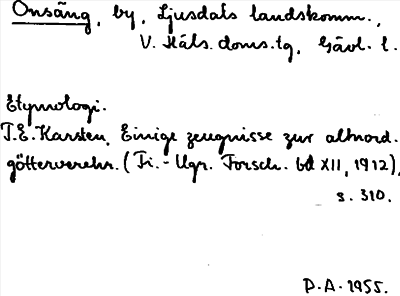 Onsäng, by, Ljusdals landskomm.,
V. Häls. doms.tg, Gävl. l.
Etymologi.
T.E. Karsten, Einige zeugnisse zur altnord.
götterverehr. (Fi.-Ugr. Forsch. bd XII, 1912),
s. 310.
P.A. 1955.